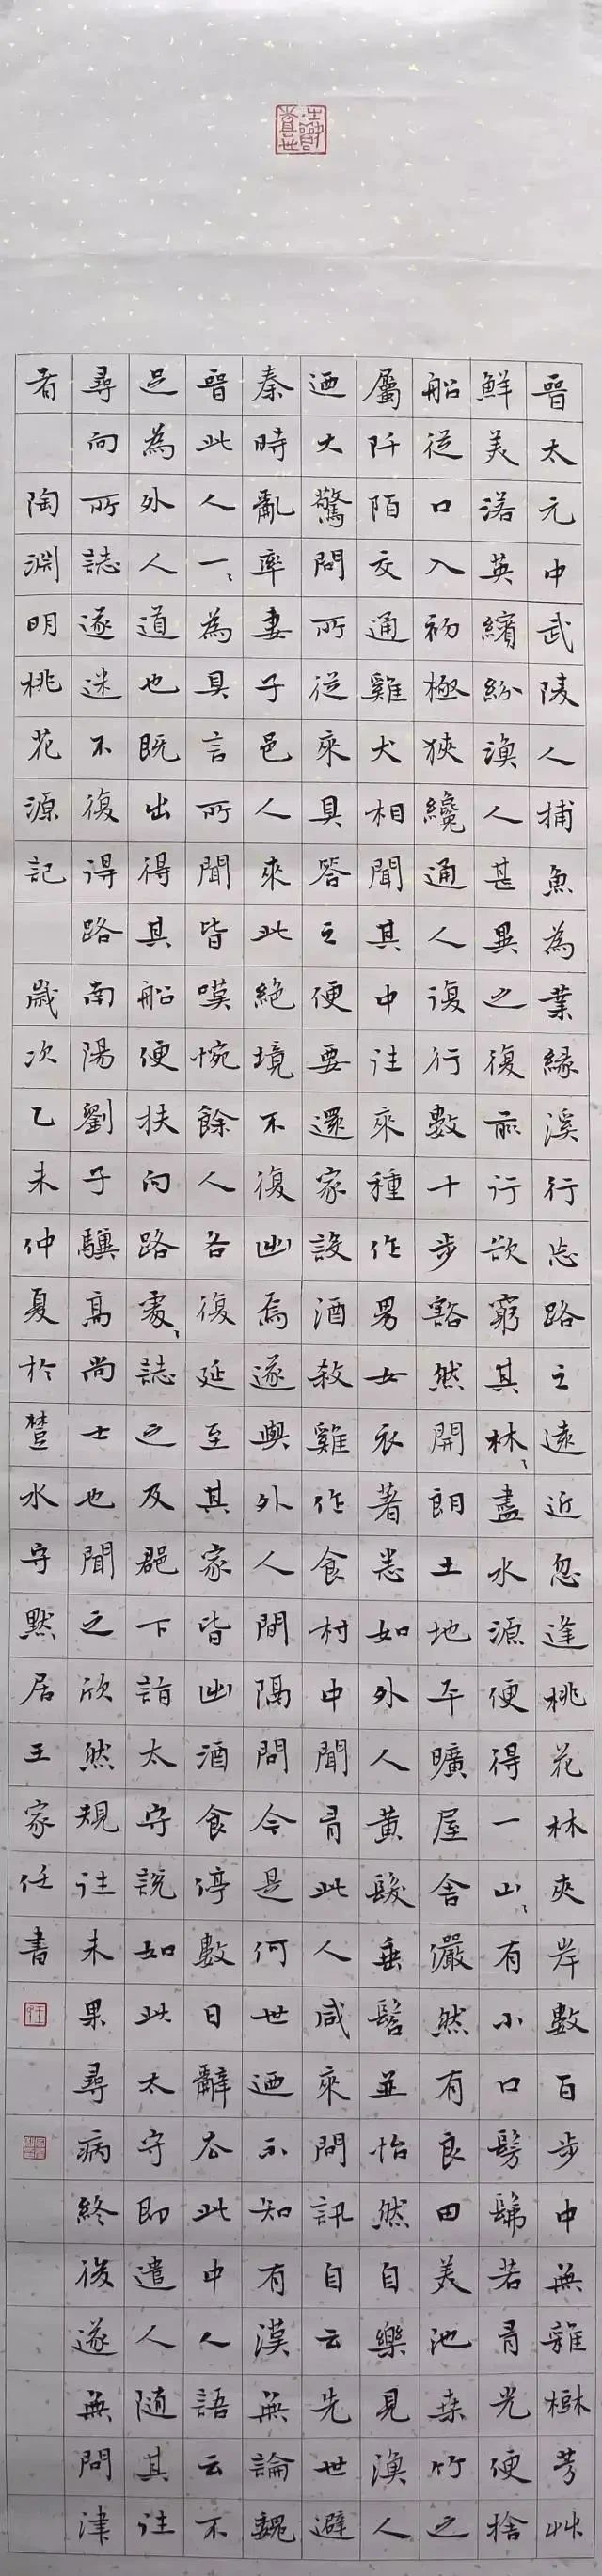 晉太元中武陵人捕魚為業緣溪行忘路之遠近忽逢桃花林夾岸數百步中無雜樹芳艸
鮮美落英繽紛漁人甚異之復前行欲窮其林〻盡水源便得一山〻有小口髣髴若有光便捨
船從口入初極狹纔通人復行數十步豁然開朗土地平曠屋舍儼然有良田美池桑竹之
屬阡陌交通雞犬相聞其中往來種作男女衣著悉如外人黃髮垂髫並怡然自樂見漁人
迺大驚問所從來具答之便要還家設酒殺雞作食村中聞有此人咸來問訊自云先世避
秦時亂率妻子邑人來此絕境不復出焉遂與外人間隔問今是何世迺不知有漢無論魏
晉此人一〻為具言所聞皆嘆惋餘人各復延至其家皆出酒食停數日辭去此中人語云不
足為外人道也既出得其船便扶向路處〻誌之及郡下詣太守說如此太守即遣人隨其往
尋向所誌遂迷不復得路南陽劉子驥高尚士也聞之欣然規往未果尋病終後遂無問津
者 陶淵明桃花源記 歲次乙未仲夏於楚水守默居王家任書